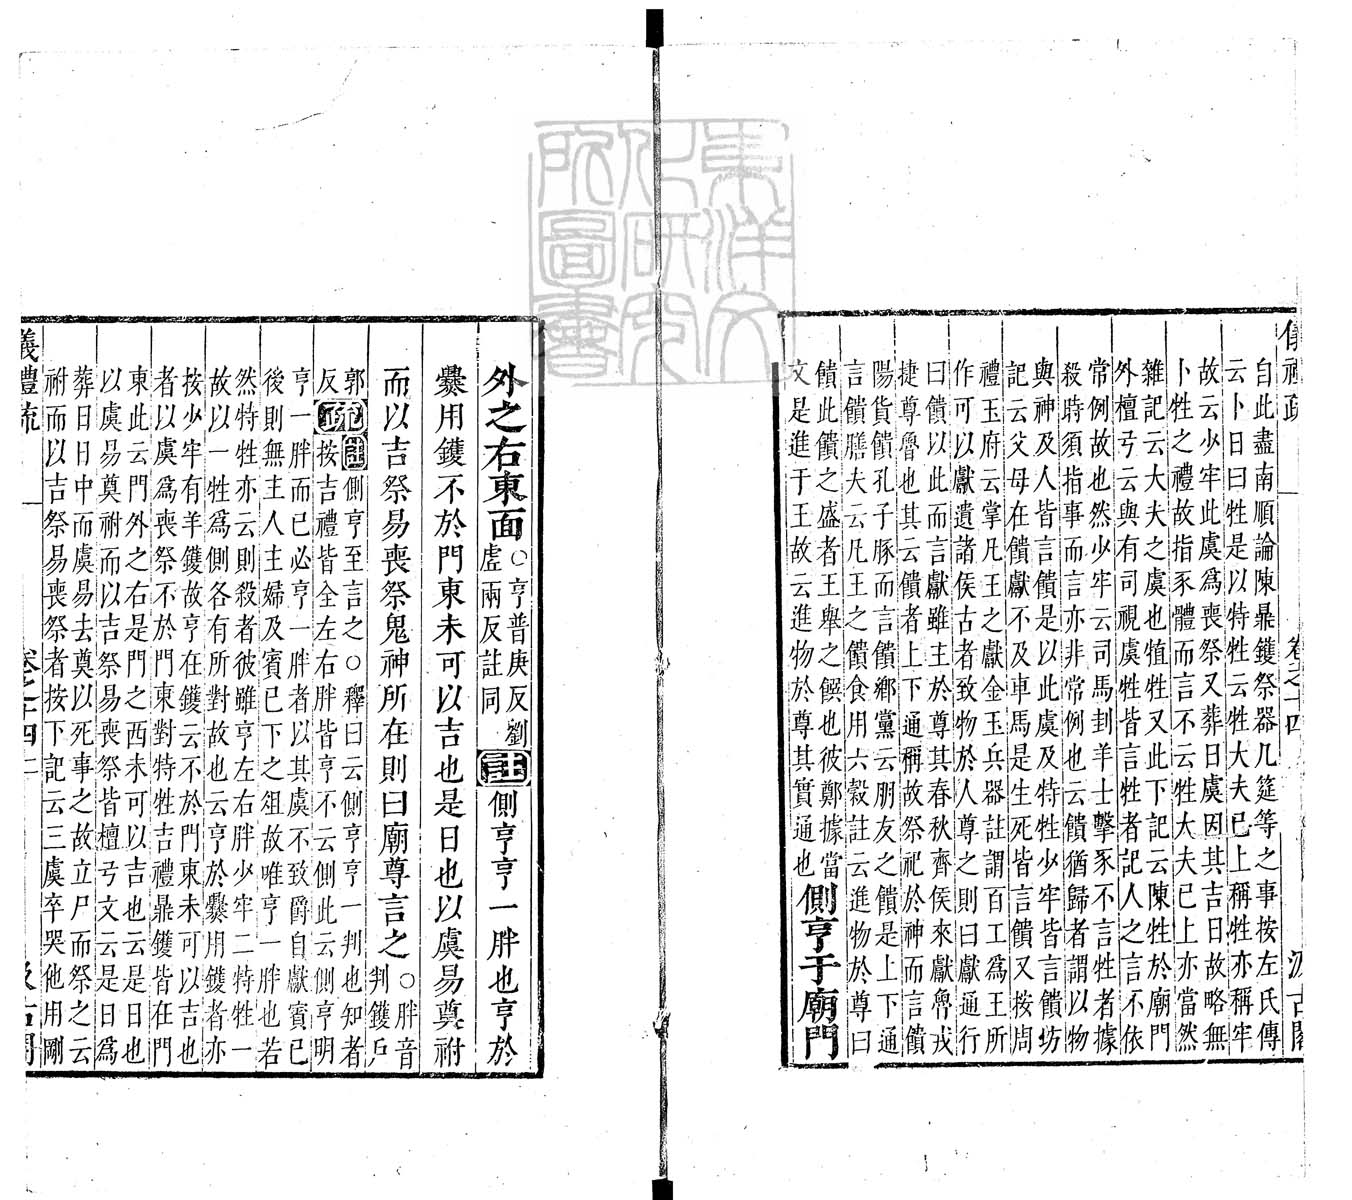 自此盡南順論陳鼎鑊祭器几筵等之事按左氏傳
云卜日曰牲是以特牲云牲大夫已上稱牲亦稱牢
故云少牢此虞爲喪祭又葬日虞因其吉日故略無
卜牲之禮故指豕體而言不云牲大夫已上亦當然
雜記云大夫之虞也犆牲又此下記云陳牲於廟門
外檀弓云與有司視虞牲皆言牲者記人之言不依
常例故也然少牢云司馬刲羊士擊豕不言牲者據
殺時須指事而言亦非常例也云饋猶歸者謂以物
與神及人皆言饋是以此虞及特牲少牢皆言饋坊
記云父母在饋獻不及車馬是生死皆言饋又按周
禮玉府云掌凡王之獻金玉兵器註謂百工爲王所
作可以獻遺諸侯古者致物於人尊之則曰獻通行
曰饋以此而言獻雖主於尊其春秋齊侯來獻魯戎
捷尊魯也其云饋者上下通稱故祭祀於神而言饋
陽貨饋孔子豚而言饋鄉黨云朋友之饋是上下通
言饋膳夫云凡王之饋食用六榖註云進物於尊曰
饋此饋之盛者王舉之饌也彼鄭據當
文是進于王故云進物於尊其實通也
側亨于廟門
外之右東面
○亨普庚反劉
虛兩反註同
註側亨亨一胖也亨於
爨用鑊不於門東未可以吉也是日也以虞易奠祔
而以吉祭易喪祭鬼神所在則曰廟尊言之
○胖音
判鑊戶
郭
反
疏註側亨至言之○釋曰云側亨亨一判也知者
按吉禮皆全左右胖皆亨不云側此云側亨明
亨一胖而已必亨一胖者以其虞不致爵自獻賓已
後則無主人主婦及賓已下之俎故唯亨一胖也若
然特牲亦云則殺者彼雖亨左右胖少牢二特牲一
故以一牲爲側各有所對故也云亨於爨用鑊者亦
按少牢有羊鑊故亨在鑊云不於門東未可以吉也
者以虞爲喪祭不於門東對特牲吉禮鼎鑊皆在門
東此云門外之右是門之西未可以吉也云是日也
以虞易奠祔而以吉祭易喪祭皆檀弓文云是日爲
葬日日中而虞易去奠以死事之故立尸而祭之云
祔而以吉祭易喪祭者按下記云三虞卒哭他用剛
儀禮疏 卷之十四 二